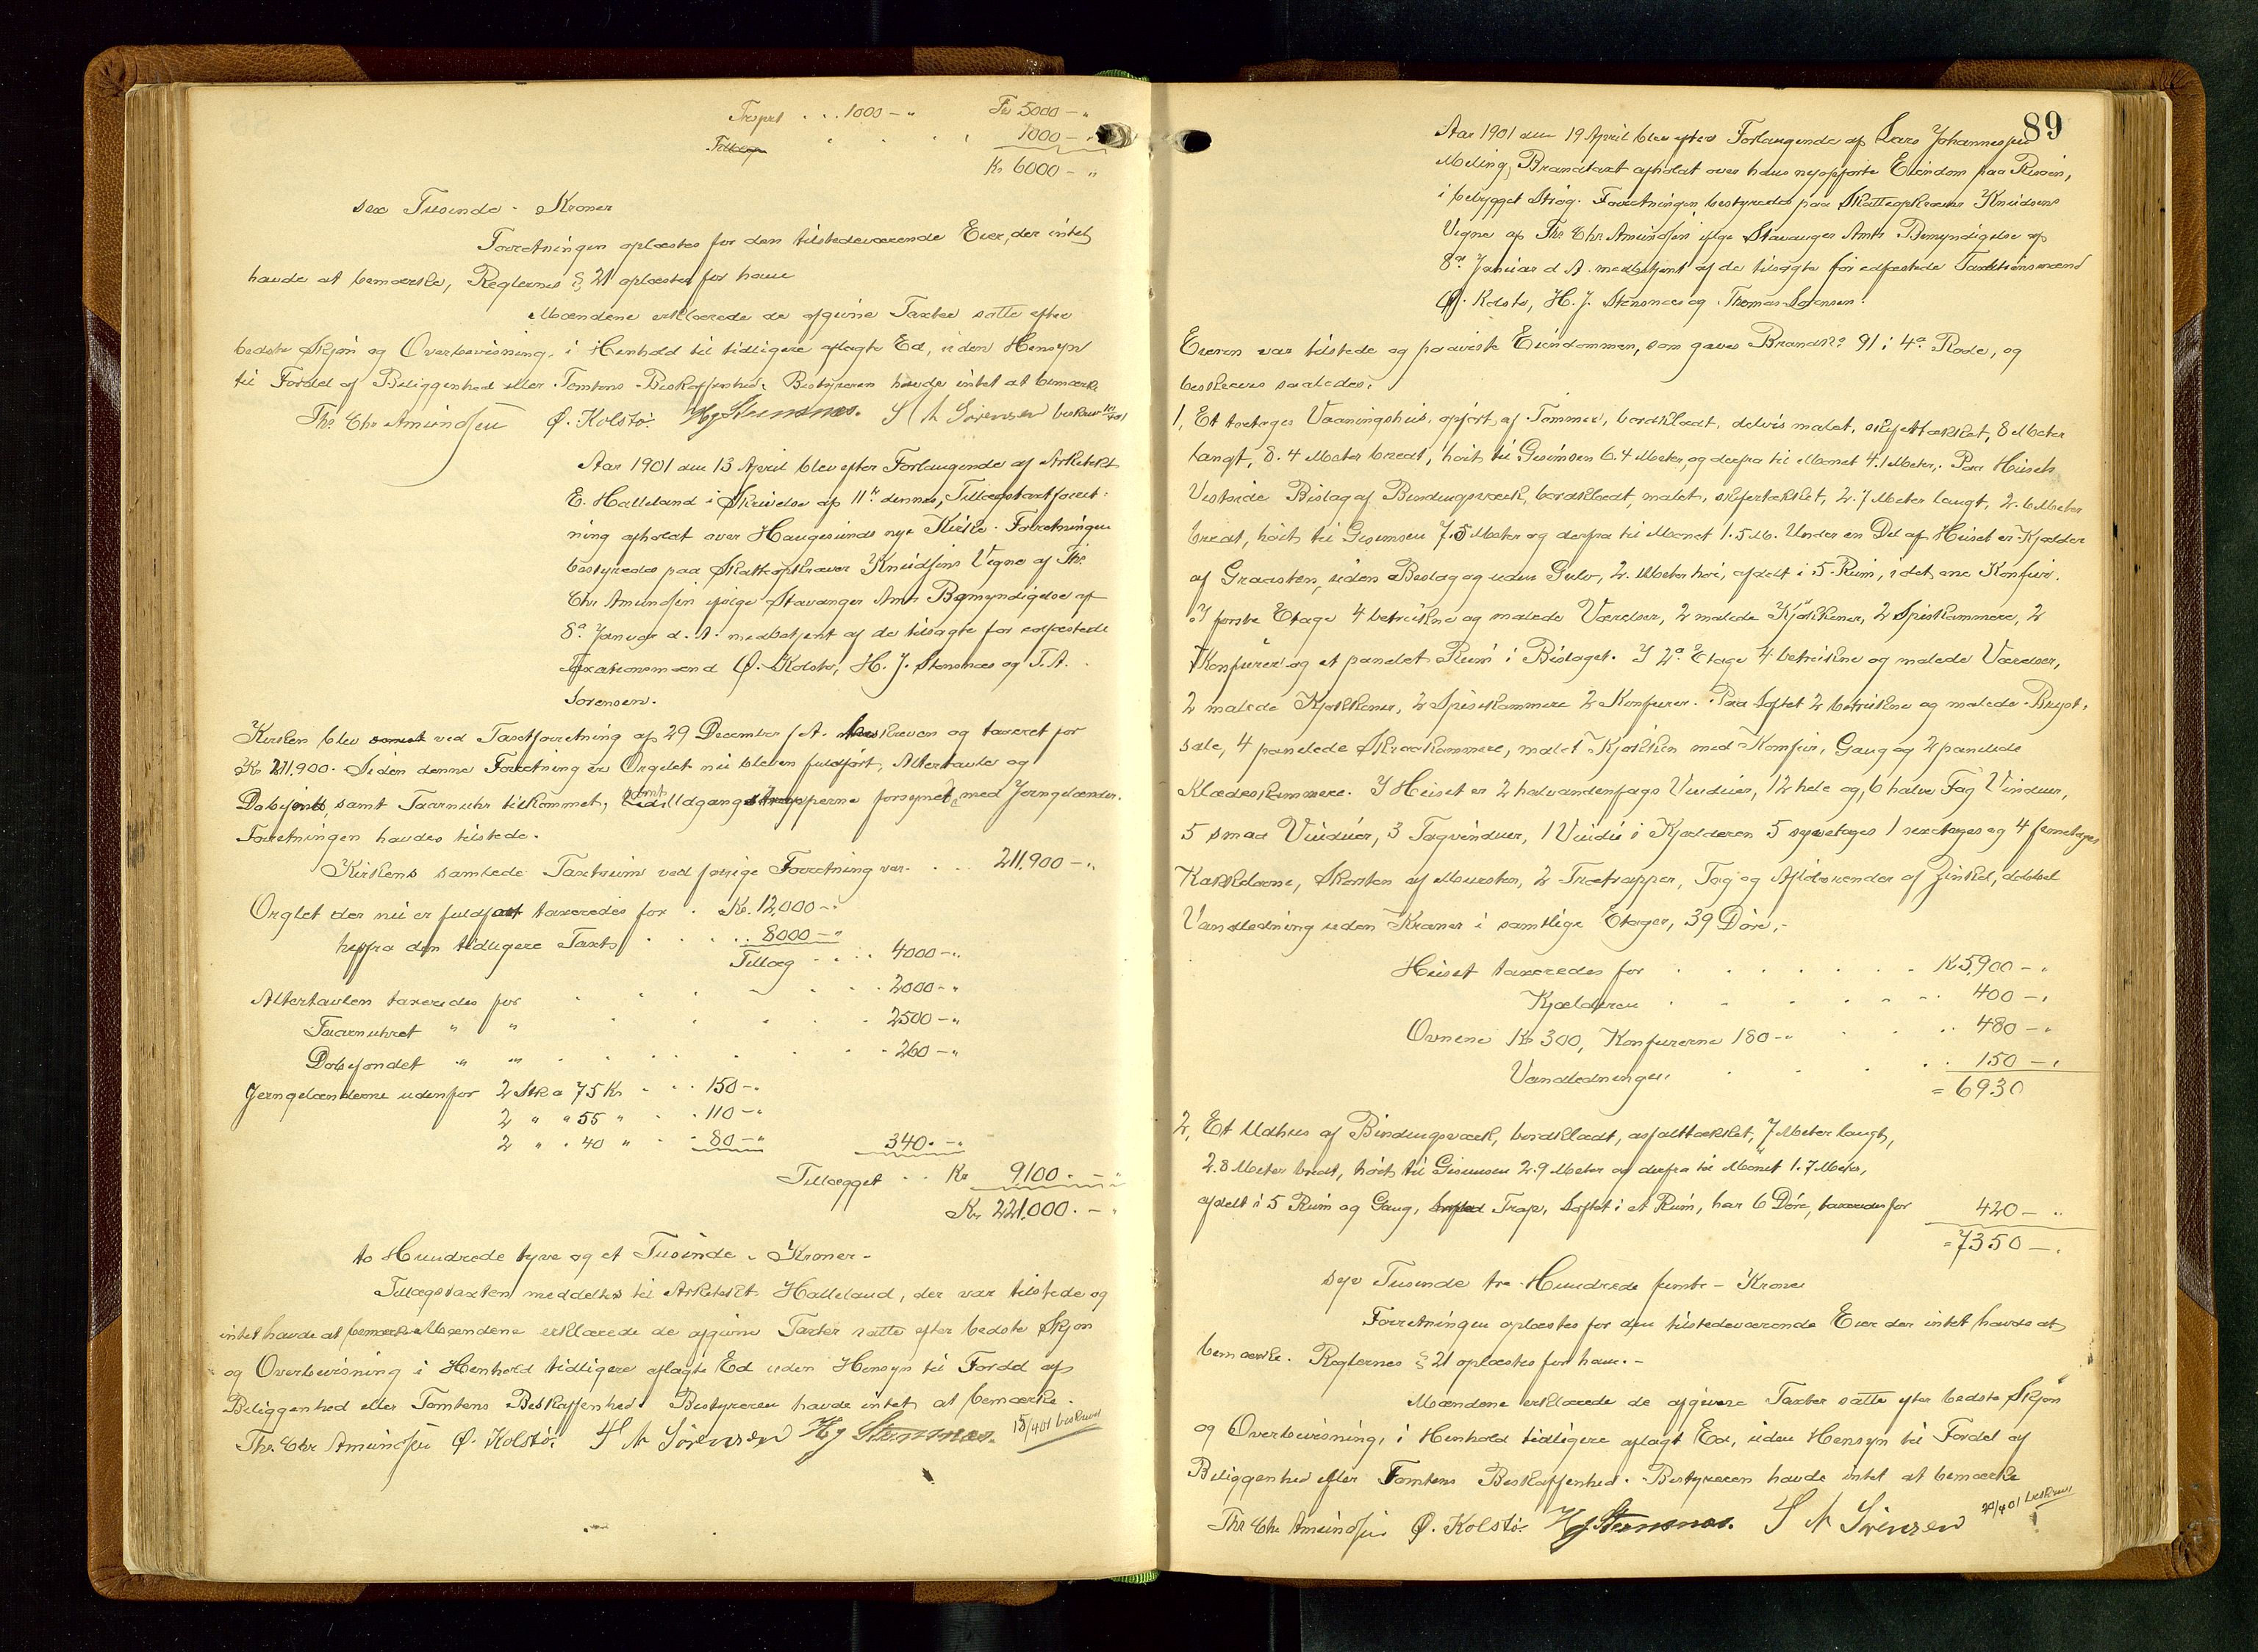 Transport . . . 1000 – " Kr 5000 – "
1000 – "
Kr 6000 – "
sex Tusinde - Kroner
Forretningen oplæstes for den tilstedeværende Eier, der intet
havde at bemærke, Reglernes § 21 oplæstes for ham
Mændene erklærede de afgivne Taxter satte efter
bedste Skjøn og Overbevisning, i Henhold til tidligere aflagte Ed, uden Hensyn
til Fordel af Beliggenhed eller Tomtens Beskaffenhed. Bestyreren havde intet at bemærke
Ths. Chr Amundsen Ø. Kolstø. H J Stensnæs. T A Sørensen
Aar 1901 den 13 April blev efter Forlangende af Arkitekt
E. Halleland i Skrivelse af 11te dennes, Tillægstaxtforret-
ning afholdt over Haugesunds nye Kirke. Forretningen
bestyredes paa Skatteopkræver Knudsens Vegne af Ths.
Chr Amundsen ifølge Stavanger Amts Bemyndigelse af
8de Januar d. A. medbetjent af de tilsagte før edfæstede
Taxationsmænd Ø. Kolstø, H. J. Stensnæs og T. A.
Sørensen.
Kirken blev ved Taxtforretning af 29 December f A. beskreven og taxeret for
Kr 211,900. Siden denne Forretning er Orgelet nu bleven fuldført, Altertavle og
Døbefont, samt Taarnuhr tilkommet, samt Udgangstrapperne forsynet med Jerngelænder.
Forretningen havdes tilstede.
Kirkens samlede Taxtsum ved forrige Forretning var . . . 211,900 – "
Orglet der nu er fuldført taxeredes for . Kr. 12,000 – "
herfra den tidligere Taxt . . . . 8000 – "
Tillæg . . . . 4000 – "
Altertavlen taxeredes for . . . . . . 2000 – "
Taarnuhret " " . . . . 2500 – "
Døbefondet " " . . . . . . 260 – "
Jerngelænderne udenfor 2 Stk a 75 Kr . . . 150 – "
2 " a 55 " . . . 110 – "
2 " " 40 " . . . 80 – " 340 – "
Tillægget . . Kr 9,100 – "
Kr 221,000. – "
to Hundrede tyve og et Tusinde - Kroner -
Tillægstaxten meddeltes til Arkitekt Halleland, der var tilstede og
intet havde at bemærke. Mændene erklærede de afgivne Taxter satte efter bedste Skjøn
og Overbevisning i Henhold tidligere aflagte Ed uden Hensyn til Fordel af
Beliggenhed eller Tomtens Beskaffenhed. Bestyreren havde intet at bemærke.
Ths. Chr Amundsen Ø. Kolstø. T A Sørensen H J Stensnæs. 15/4 01 beskrevet
89
Aar 1901 den 19 April blev efter Forlangende af Lars Johannessen
Meling, Brandtaxt afholdt over hans nyopførte Eiendom paa Risøen,
i bebygget Strøg. Forretningen bestyredes paa Skatteopkræver Knudsens
Vegne af Ths Chr Amundsen ifølge Stavanger Amts Bemyndigelse af
8de Januar d A. medbetjent af de tilsagte før edfæstede Taxationsmænd
Ø. Kolstø, H. J. Stensnæs og Thomas Sørensen.
Eieren var tilstede og paaviste Eiendommen, som gaves Brands No 91 i 4de Rode, og
beskrives saaledes:
1, Et toetages Vaaningshus, opført af Tømmer, bordklædt, delvis malet, skifertækket, 8 Meter
langt, 8.4 Meter bredt, høit til Gesimsen 6.4 Meter, og derfra til Mønet 4.1 Meter. Paa Husets
Vestside Bislag af Bindingsværk, bordklædt, malet, skifertækket, 2.7 Meter langt, 2.6 Meter
bredt, høit til Gesimsen 7.5 Meter og derfra til Mønet 1.5 M. Under en Del af Huset er Kjælder
af Graasten, uden Beslag og uden Gulv, 2. Meter høi, afdelt i 5 Rum, i det ene Komfur.
I første Etage 4 betrukne og malede Værelser, 2 malede Kjøkkener, 2 Spiskammere, 2
Komfurer og et panelet Rum i Bislaget. I 2den Etage 4 betrukne og malede Værelser,
2 malede Kjøkkener, 2 Spiskammere 2 Komfurer. Paa Loftet 2 betrukne og malede Bryst-
sale, 4 panelede Skraakammere, malet Kjøkken med Komfur, Gang og 2 panelede
Klædeskammere. I Huset er 2 halvandenfags Vinduer, 12 hele og 6 halve Fag Vinduer,
5 smaa Vinduer, 3 Tagvinduer, 1 Vindu i Kjælderen 5 syvetages 1 sexetages og 4 femetages
Kakkelovne, Skorsten af Mursten, 2 Trætrapper, Tag og Afløbsrender af Zinkel, dobbel
Vandledning uden Kraner i samtlige Etager, 39 Døre,-
Huset taxeredes for . . . . . . Kr 5,900 – "
Kjælderen . . . . . . 400 – "
Ovnene Kr 300, Komfurerne 180 – " . . . 480 – "
Vandledningen . . . . . 150 – "
= 6930
2, Et Udhus af Bindingsværk, bordklædt, asfalttækket, 7 Meter langt,
2.8 Meter bredt, høit til Gesimsen 2.9 Meter og derfra til Mønet 1.7 Meter,
afdelt i 5 Rum og Gang, Trap, Loftet i et Rum, har 6 Døre, taxeredes for 420 – "
= 7350 – "
syv Tusinde tre Hundrede femti - Kroner
Forretningen oplæstes for den tilstedeværende Eier der intet havde at
bemærke. Reglernes § 21 oplæstes for ham. -
Mændene erklærede de afgivne Taxter satte efter bedste Skjøn
og Overbevisning, i Henhold tidligere aflagt Ed, uden Hensyn til Fordel af
Beliggenhed eller Tomtens Beskaffenhed. Bestyreren havde intet at bemærke
Ths Chr Amundsen Ø. Kolstø. H J Stensnæs. T A Sørensen 20/4 01 beskrevet